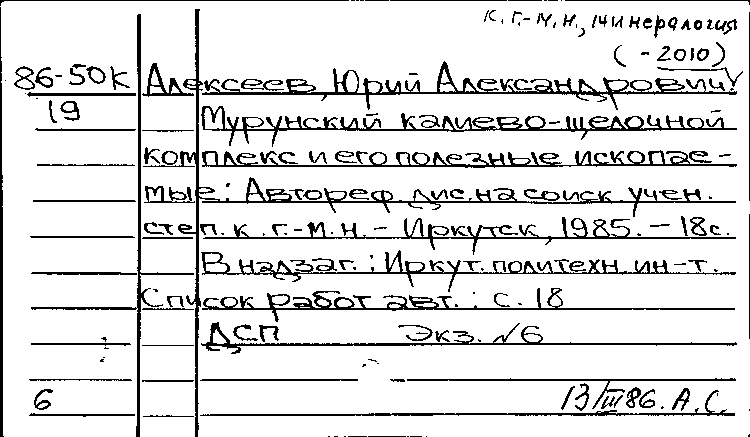 к. г.-м. н., минералогия
( - 2010)
86-50К Алексеев, Юрий Александрович.
19 Мурунский калиево-щелочной
комплекс и его полезные ископае-
мые: Автореф. дис. на соиск. учен.
степ. к. г.-м. н. - Иркутск, 1985. - 18с.
В надзаг.: Иркут. политехн. ин-т.
Список работ авт.: с. 18
ДСП Экз. №6
6 13/III 86. А.С.